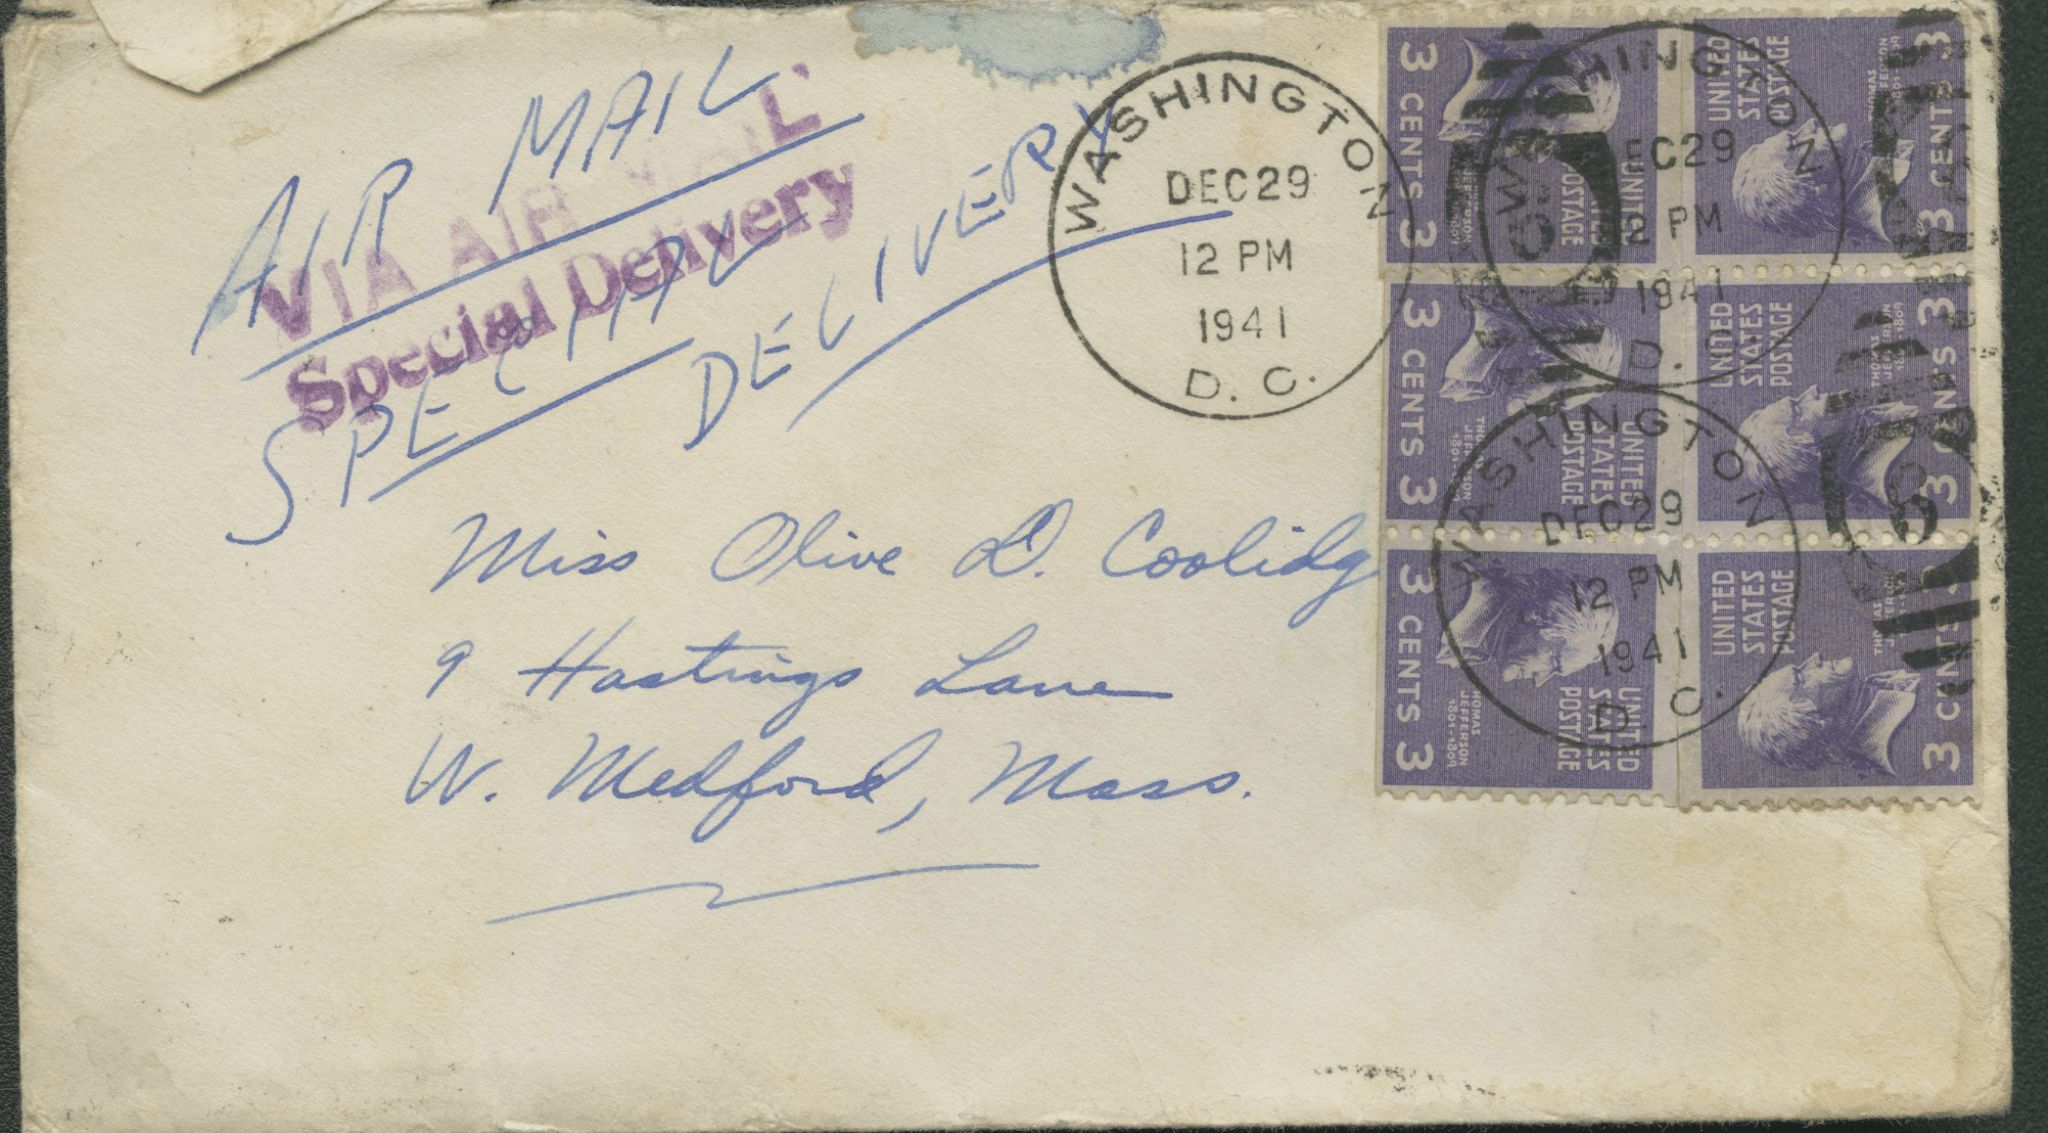 AIR MAIL
VIA AIR MAIL
Special Delivery
SPECIAL
DELIVERY
WASHINGTON
DEC 29
12 PM
1941
D. C.
WASHINGTON
DEC 29
12 PM
1941
D.
WASHINGTON
DEC 29
12 PM
1941
D. C.
Miss Olive D. Coolidg
9 Hastings Lane
W. Medford, Mass.
3 CENTS 3
UNITED
STATES
POSTAGE
THOMAS
JEFFERSON
3 CENTS 3
UNITED
STATES
POSTAGE
THOMAS
JEFFERSON
3 CENTS 3
UNITED
STATES
POSTAGE
THOMAS
JEFFERSON
1801-1809
3 CENTS 3
UNITED
STATES
POSTAGE
THOMAS
JEFFERSON
1801-1809
3 CENTS 3
UNITED
STATES
POSTAGE
THOMAS
JEFFERSON
1801-1809
3 CENTS 3
UNITED
STATES
POSTAGE